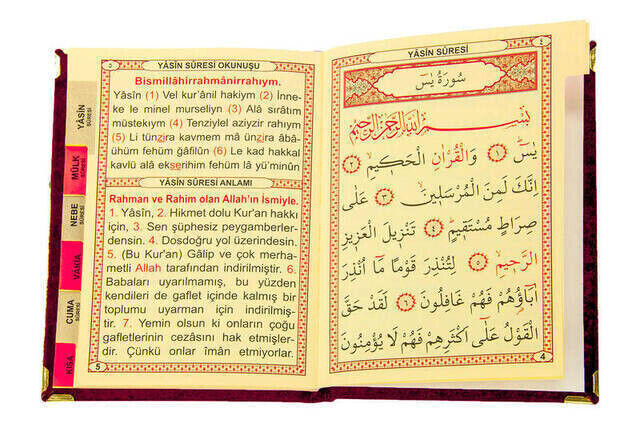 YÂSÎN
SÛRESİ
MÜLK
SÛRESİ
NEBE
SÛRESİ
VÂKIA
CUMA
SÛRESİ
KISA
٥ YÂSÎN SÛRESİ OKUNUŞU
Bismillâhirrahmânirrahıym.
Yâsîn (1) Vel kur'ânil hakiym (2) İnne-
ke le minel murseliyn (3) Alâ sırâtım
müstekıym (4) Tenziylel aziyzir rahıym
(5) Li tünzira kavmem mâ ünzira âbâ-
ühüm fehüm ğafilûn (6) Le kad hakkal
kavlü alâ ekserihim fehüm lâ yü'minûn
YÂSÎN SÛRESİ ANLAMI
Rahman ve Rahim olan Allah'ın İsmiyle.
1. Yâsîn, 2. Hikmet dolu Kur'an hakkı
için, 3. Sen şüphesiz peygamberler-
densin. 4. Dosdoğru yol üzerindesin.
5. (Bu Kur'an) Gâlip ve çok merha-
metli Allah tarafından indirilmiştir. 6.
Babaları uyarılmamış, bu yüzden
kendileri de gaflet içinde kalmış bir
toplumu uyarman için indirilmiş-
tir. 7. Yemin olsun ki onların çoğu
gafletlerinin cezasını hak etmişler-
dir. Çünkü onlar îmân etmiyorlar.
5
YÂSÎN SÛRESİ ٤
سُورَةُ يٰسٓ
بِسْمِ اللّٰهِ الرَّحْمٰنِ الرَّحِيمِ
يٰسٓ ﴿١﴾ وَالْقُرْاٰنِ الْحَكِيمِ ﴿٢﴾
اِنَّكَ لَمِنَ الْمُرْسَلِينَ ﴿٣﴾ عَلٰى
صِرَاطٍ مُسْتَقِيمٍ ﴿٤﴾ تَنْزِيلَ الْعَزِيزِ
الرَّحِيمِ ﴿٥﴾ لِتُنْذِرَ قَوْمًا مَٓا اُنْذِرَ
اٰبَٓاؤُهُمْ فَهُمْ غَافِلُونَ ﴿٦﴾ لَقَدْ حَقَّ
الْقَوْلُ عَلٰٓى اَكْثَرِهِمْ فَهُمْ لَا يُؤْمِنُونَ
4